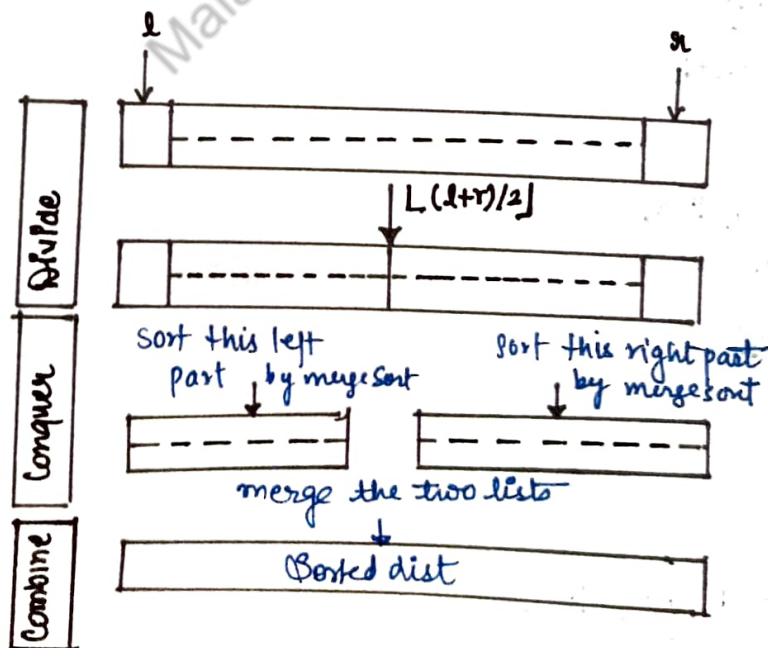 l
r
Divide
⌊(l+r)/2⌋
Sort this left
part by mergesort
Sort this right part
by mergesort
Conquer
merge the two lists
Combine
Sorted list